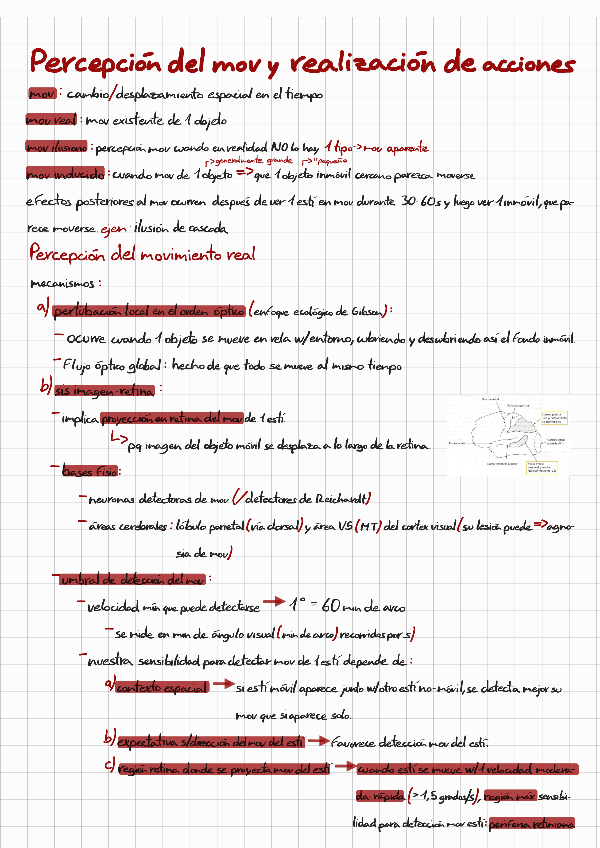 Percepción del mov y realización de acciones
mov : cambio/desplazamiento espacial en el tiempo
mov real : mov existente de 1 objeto
mov ilusorio : percepción mov cuando en realidad NO lo hay 1 tipo -> mov aparente
↱> generalmente grande ↱> " pequeño
mov inducido : cuando mov de 1 objeto => que 1 objeto inmóvil cercano parezca moverse
efectos posteriores al mov ocurren después de ver 1 estí en mov durante 30-60s y luego ver 1 inmóvil, que pa-
rece moverse. ejem: ilusión de cascada
Percepción del movimiento real
mecanismos :
a) pertubación local en el orden óptico (enfoque ecológico de Gibson) :
- ocurre cuando 1 objeto se mueve en rela w/entorno, cubriendo y descubriendo así el fondo inmóvil.
- Flujo óptico global : hecho de que todo se mueve al mismo tiempo
b) sis imagen-retina :
- implica proyección en retina del mov de 1 estí.
↳> pq imagen del objeto móvil se desplaza a lo largo de la retina
- bases fisio :
- neuronas detectoras de mov (/detectores de Reichardt)
- áreas cerebrales : lóbulo parietal (vía dorsal) y área V5 (MT) del cortex visual (su lesión puede => agno-
sia de mov)
- umbral de detección del mov :
- velocidad mín que puede detectarse → 1° = 60 min de arco
- se mide en min de ángulo visual (min de arco) recorridos por s)
- nuestra sensibilidad para detectar mov de 1 estí depende de :
a) contexto espacial → si estí móvil aparece junto w/otro estí no-móvil, se detecta mejor su
mov que si aparece solo.
b) expectativa s/dirección del mov del estí → favorece detección mov del estí.
c) región retina donde se proyecta mov del estí → cuando estí se mueve w/1 velocidad modera-
da rápida (>1,5 grados/s), región más sensibi-
lidad para detección mov estí : periferia retiniana